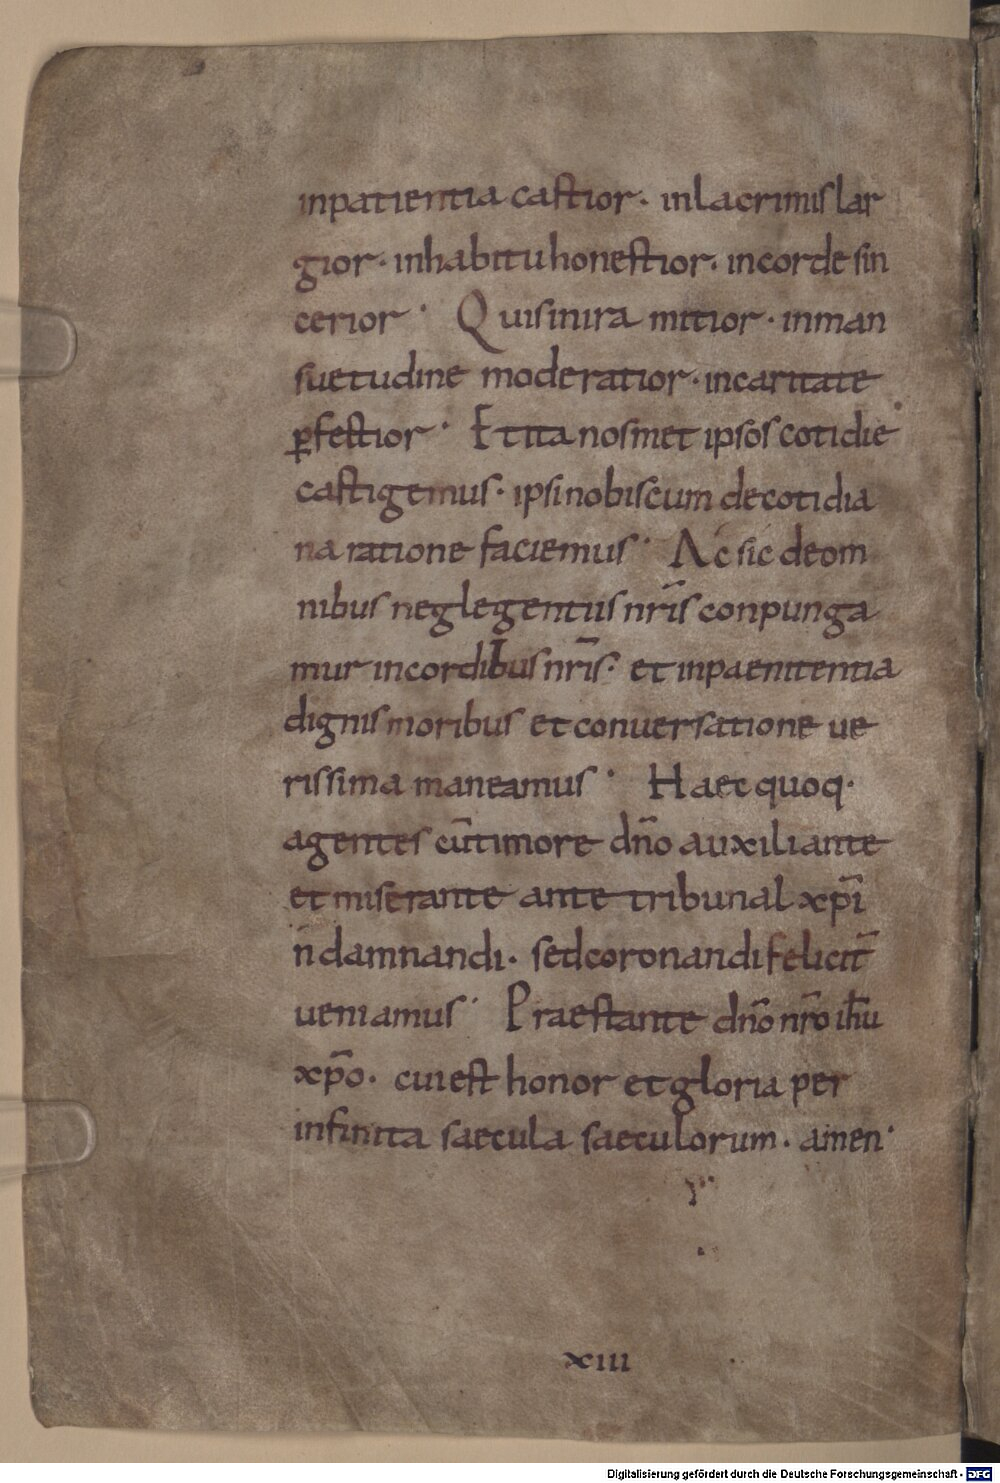 inpatientia castior· inlacrimis lar
gior· inhabitu honestior· incorde sin
cerior· Quisinira mitior· inman
suetudine moderatior· incaritate
ꝑfectior· Et ita nosmet ipsos cotidie
castigemus· ipsi nobiscum decotidia
na ratione faciemus· Ac sic deom
nibus neglegentiis nr̄is conpunga
mur incordibus nr̄is· et inpaenitentia
dignis moribus et conuersatione ue
rissima maneamus· Haec quoq·
agentes cū timore dn̄o auxiliante
et miserante ante tribunal xp̄i
n̄ damnandi· sed coronandi felicit̄
ueniamus· Praestante dn̄o nr̄o ih̄u
xp̄o· cui est honor et gloria per
infinita saecula saeculorum· amen·
xiii
Digitalisierung gefördert durch die Deutsche Forschungsgemeinschaft - DFG